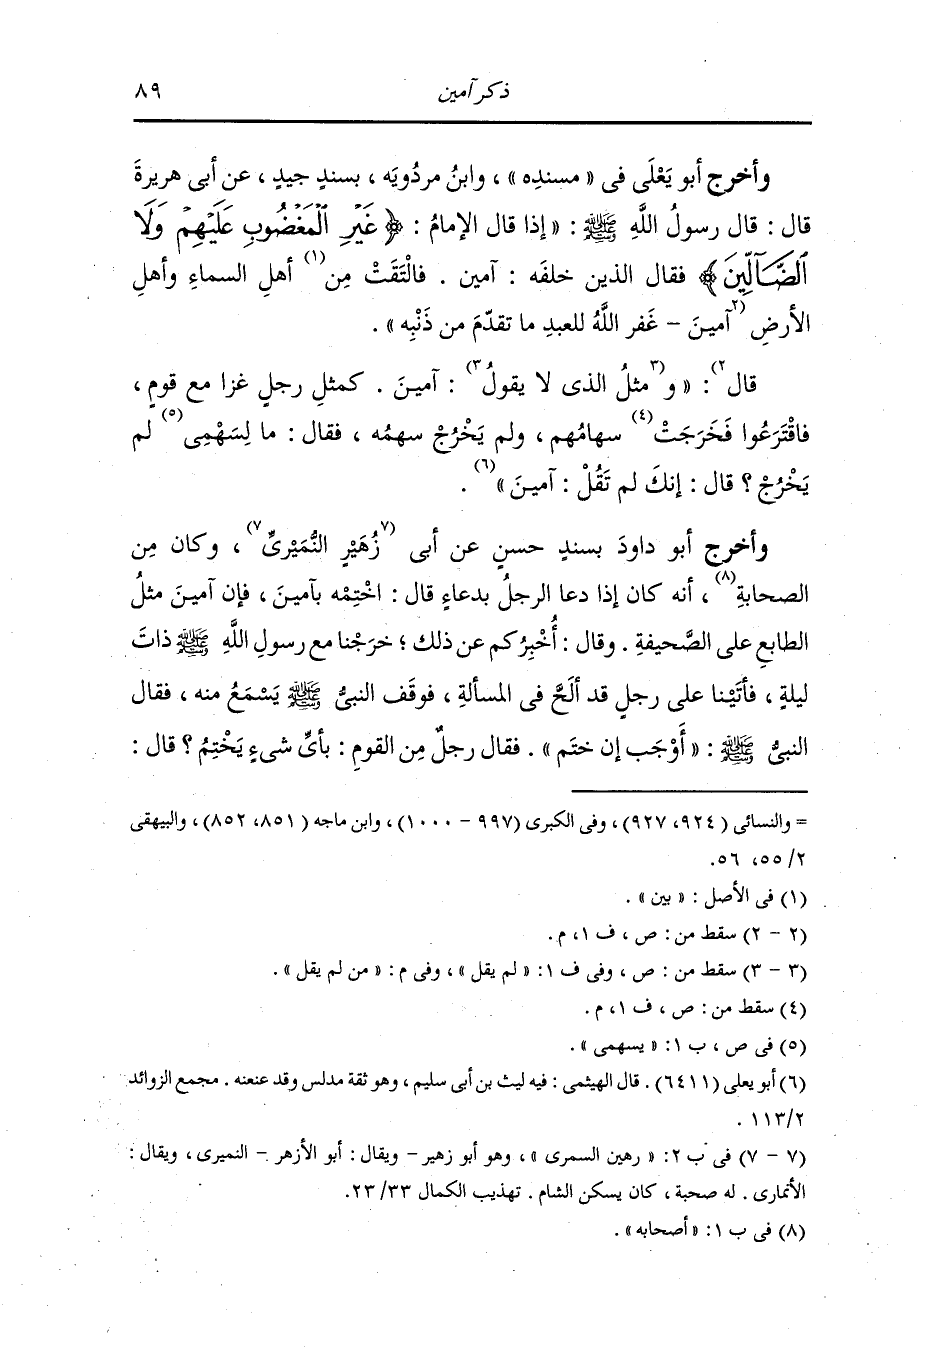 ذكر آمين ٨٩
وأخرج أبو يَعْلَى فى « مسندِه » ، وابنُ مردُويَه ، بسندٍ جيدٍ ، عن أبى هريرةَ
قال : قال رسولُ اللَّهِ ﷺ : « إذا قال الإمامُ : ﴿ غَيْرِ ٱلْمَغْضُوبِ عَلَيْهِمْ وَلَا
ٱلضَّآلِّينَ ﴾ فقال الذين خلفَه : آمين . فالْتَقَتْ مِن(١) أهلِ السماءِ وأهلِ
الأرضِ (٢آمينَ – غَفر اللَّهُ للعبدِ ما تقدّمَ من ذَنْبِه » .
قال٢) : « و(٣مثلُ الذى لا يقولُ٣) : آمينَ . كمثلِ رجلٍ غزا مع قومٍ ،
فاقْتَرَعُوا فَخَرَجَتْ(٤) سهامُهم ، ولم يَخْرُجْ سهمُه ، فقال : ما لِسَهْمِى(٥) لم
يَخْرُجْ ؟ قال : إنكَ لم تَقُلْ : آمينَ »(٦) .
وأخرج أبو داودَ بسندٍ حسنٍ عن أبى (٧زُهَيْرٍ النُّمَيْرىِّ٧) ، وكان مِن
الصحابةِ(٨) ، أنه كان إذا دعا الرجلُ بدعاءٍ قال : اخْتِمْه بآمينَ ، فإن آمينَ مثلُ
الطابعِ على الصَّحيفةِ . وقال : أُخْبِرُكم عن ذلك ؛ خرَجْنا مع رسولِ اللَّهِ ﷺ ذاتَ
ليلةٍ ، فأتَيْنا على رجلٍ قد ألَحَّ فى المسألةِ ، فوقَف النبىُّ ﷺ يَسْمَعُ منه ، فقال
النبىُّ ﷺ : « أَوْجَب إن ختَم » . فقال رجلٌ مِن القومِ : بأىِّ شىءٍ يَخْتِمُ ؟ قال :
= والنسائى ( ٩٢٤، ٩٢٧) ، وفى الكبرى (٩٩٧ – ١٠٠٠) ، وابن ماجه ( ٨٥١، ٨٥٢) ، والبيهقى
٢/ ٥٥، ٥٦.
(١) فى الأصل : « بين » .
(٢ – ٢) سقط من : ص ، ف ١، م.
(٣ – ٣) سقط من : ص ، وفى ف ١: « لم يقل » ، وفى م : « من لم يقل » .
(٤) سقط من : ص ، ف ١، م .
(٥) فى ص ، ب ١: « يسهمى » .
(٦) أبو يعلى (٦٤١١) . قال الهيثمى : فيه ليث بن أبى سليم ، وهو ثقة مدلس وقد عنعنه . مجمع الزوائد
٢/ ١١٣ .
(٧ – ٧) فى ب ٢: « رهين السمرى » ، وهو أبو زهير – ويقال : أبو الأزهر – النميرى ، ويقال :
الأنمارى . له صحبة ، كان يسكن الشام . تهذيب الكمال ٣٣/ ٢٣.
(٨) فى ب ١: « أصحابه » .